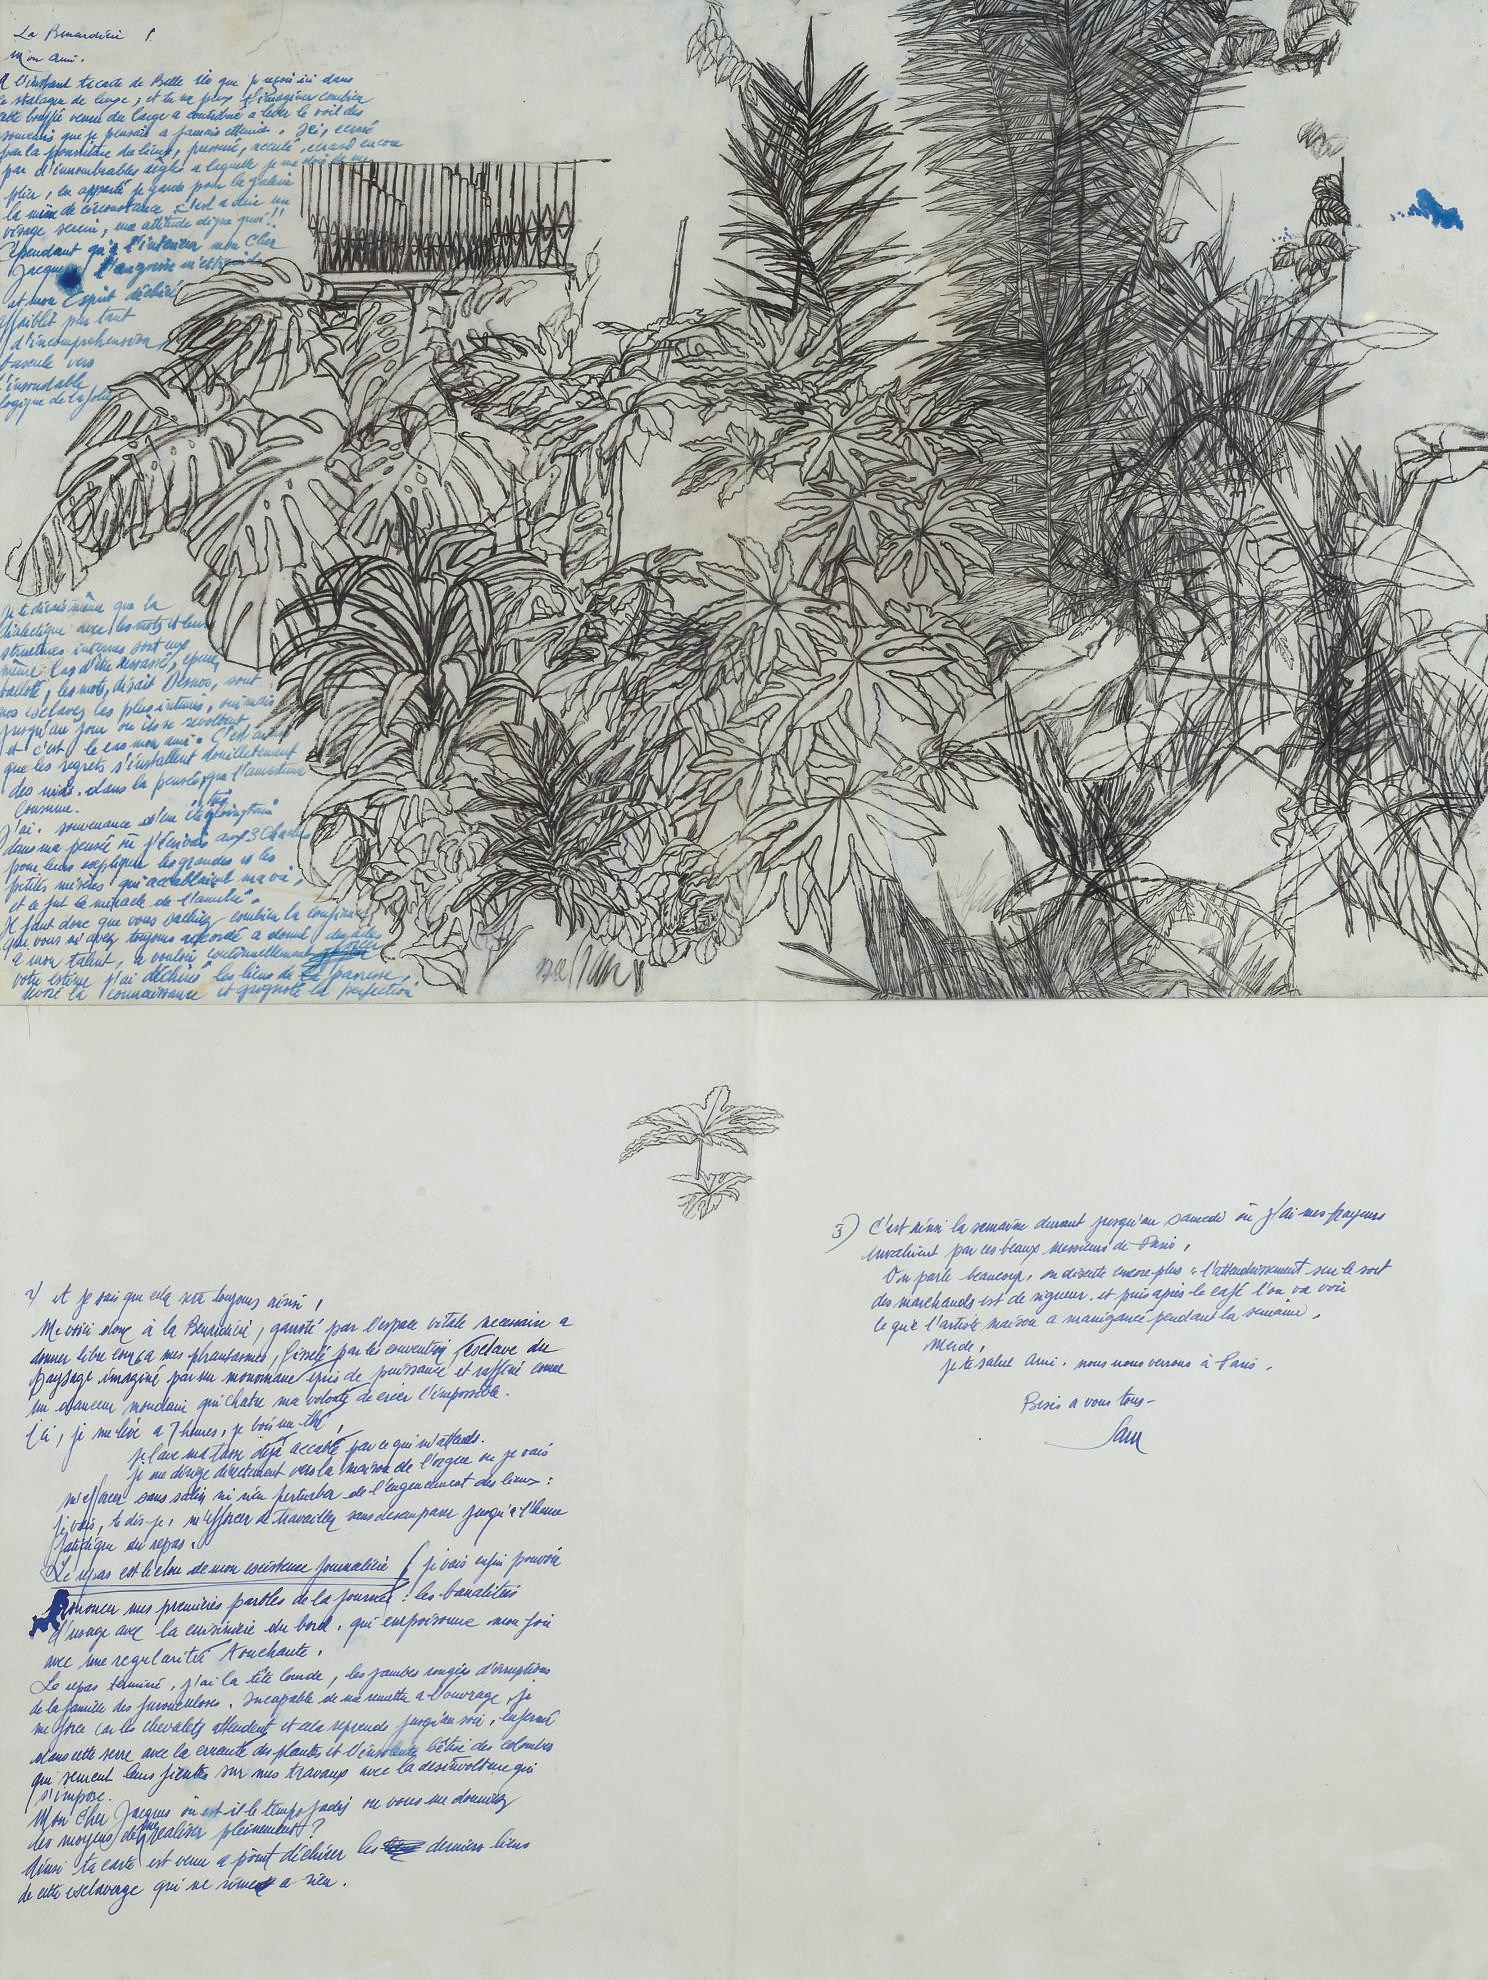 La Benardière
Mon Ami.
A l'instant ta carte de Belle Ile que je reçois ici dans
le stalague de luxe ; et tu ne peux t'imaginer combien
cette bouffée venue du large a contribué a lever le voil des
souvenirs que je pensais a jamais éteind. Ici, cerné
par la poussière du lieux, pressuré, acculé, écrasé encore
par d'innombrables règles a laquelle je me dois de me
plier, en apparté je garde pour la galerie
la mine de circonstance. C'est a dire un
visage serein, une attitude digne quoi !!
Cependant qu'à l'intérieur mon Cher
Jacques l'angoisse m'estr
et mon Esprit déchiré
affaiblit par tant
d'incompréhension
bascule vers
l'insondable
logique de la folie
Je te dirais même que la
dialectique avec les mots et leurs
structures internes sont eux
même las d'être ressassé, épuré,
balloté, les mots, disait Desnos, sont
nos esclaves les plus intimes, oui mais
jusqu'au jour ou ils se revoltent
et c'est le cas mon ami. C'est ainsi
que les regrets s'installent douilletement
des nids dans la pensée, que l'amertume
consume.
J'ai souvenance d'un été très lointain
dans ma pensée où j'écrivais aux 3 Charles
pour leurs expliquer les grandes et les
petites misères qui accablaient ma vie,
et ce fut le miracle de l'amitié.
Il faut donc que vous sachiez combien la confiance
que vous m'avez toujours accordé a donné des ailes
a mon talent, a vouloir continuellement
votre estime j'ai déchiré les liens de la paresse,
dévoré la connaissance et grignoté la perfection
2) et je sais que cela sera toujours ainsi !
Me voici donc à la Benardière, garroté par l'espace vitale necessaire a
donner libre cours a mes phantasmes, ficelé par les convention, esclave du
paysage imaginé par un monomane épris de puissance et raffiné comme
un danceur mondain qui chatre ma volonté de créer l'impossible.
Ici, je me lève a 7 heures, je bois un thé,
je lave ma tasse déjà accablé par ce qui m'attends.
je me dirige directement vers la maison de l'orgue ou je vais
m'efforcer sans salir ni rien perturber de l'engencement des lieux :
je vais, te dis-je, m'efforcer de travailler sans desemparer jusqu'à l'heure
fatidique du repas.
Le repas est le clou de mon existence journalière, je vais enfin pouvoir
prononcer mes premières paroles de la journée : les banalités
d'usage avec la cuisinière du bord, qui empoisonne mon foie
avec une regularité touchante.
Le repas terminé, j'ai la tête lourde, les jambes rongées d'irruptions
de la famille des furonculoses. Incapable de me remettre a l'ouvrage, je
me force car les chevalets attendent et cela reprends jusqu'au soir, enfermé
dans cette serre avec la cruauté des plantes et l'insolente bêtise des colombes
qui sement leurs fientes sur mes travaux avec la desinvolture qui
s'impose.
Mon Cher Jacques où est-il le temps jadis ou vous me donniez
des moyens de me realiser pleinement ?
Ainsi ta carte est venu a point déchirer les derniers liens
de cette esclavage qui ne rime a rien.
3) C'est ainsi la semaine durant jusqu'au samedi où j'ai mes frayeurs
envahient par ces beaux messieurs de Paris,
On parle beaucoup, on discute encore plus, l'attendrissement sur le sort
des marchands est de rigueur. et puis après le café l'on va voir
ce que l'artiste maison a manigancé pendant la semaine.
Merde,
je te salut Ami. nous nous verrons à Paris.
Bises a vous tous-
Sam